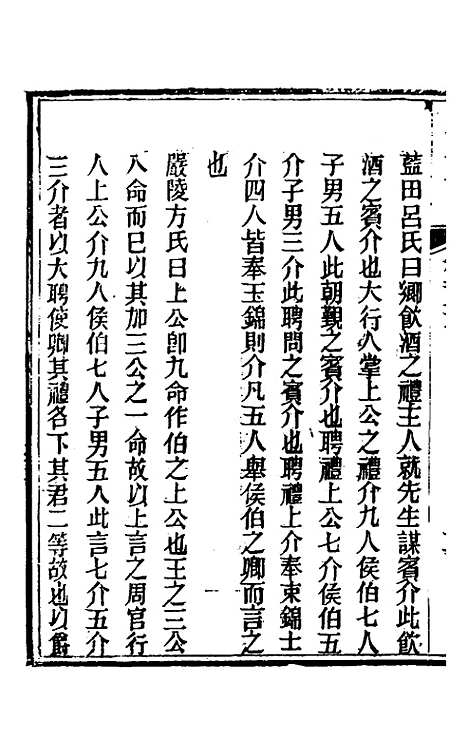 藍田呂氏曰鄉飮酒之禮主人就先生謀賓介此飮
酒之賓介也大行人掌上公之禮介九人侯伯七人
子男五人此朝覲之賓介也聘禮上公七介侯伯五
介子男三介此聘問之賓介也聘禮上介奉束錦士
介四人皆奉玉錦則介凡五人舉侯伯之卿而言之
也
嚴陵方氏曰上公卽九命作伯之上公也王之三公
八命而巳以其加三公之一命故以上言之周官行
人上公介九人侯伯七人子男五人此言七介五介
三介者以大聘使卿其禮各下其君二等故也以爵